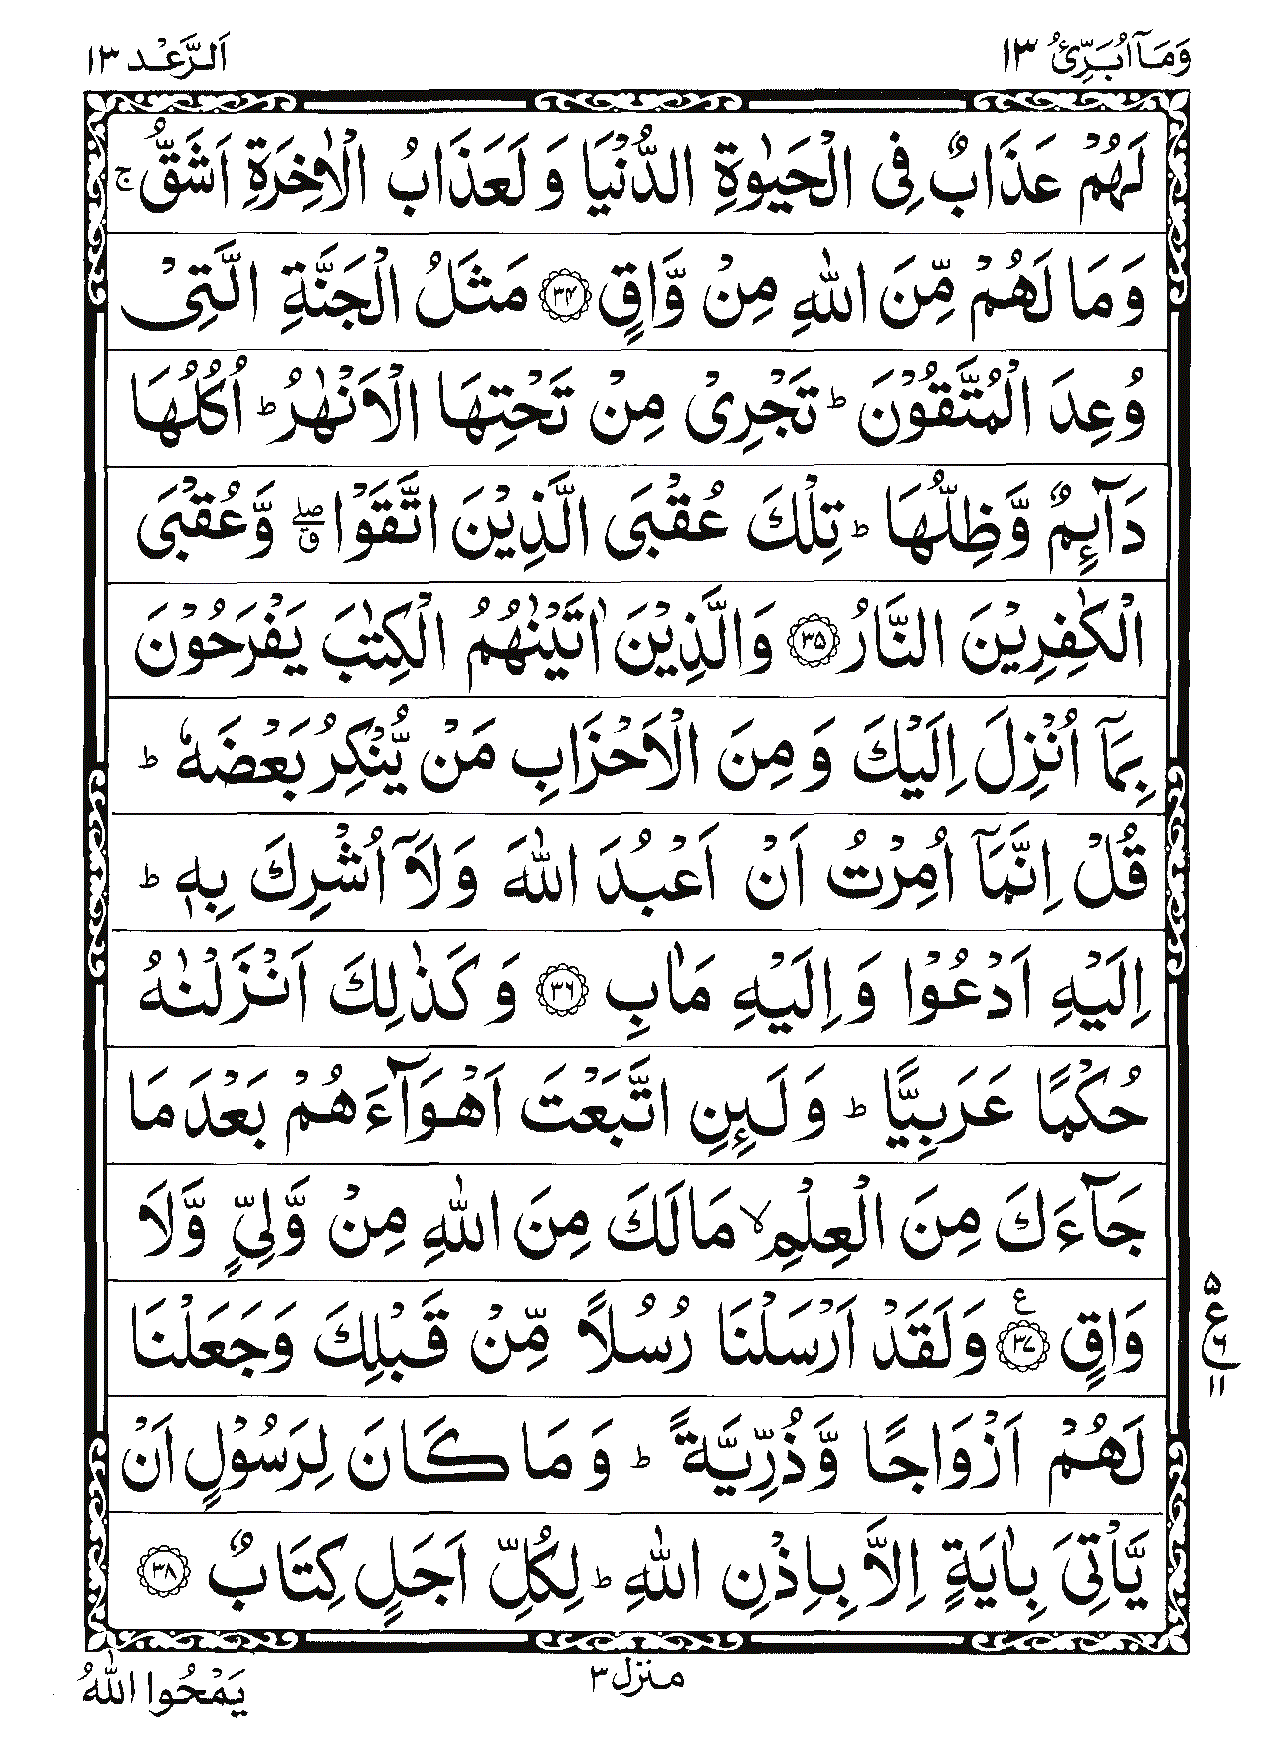 وَمَآ اُبَرِّئُ ١٣
اَلرَّعْد ١٣
لَهُمْ عَذَابٌ فِی الْحَیٰوةِ الدُّنْیَا وَ لَعَذَابُ الْاٰخِرَةِ اَشَقُّ ۚ
وَ مَا لَهُمْ مِّنَ اللّٰهِ مِنْ وَّاقٍ ﴿۳۴﴾ مَثَلُ الْجَنَّةِ الَّتِیْ
وُعِدَ الْمُتَّقُوْنَ ؕ تَجْرِیْ مِنْ تَحْتِهَا الْاَنْهٰرُ ؕ اُكُلُهَا
دَآىِٕمٌ وَّظِلُّهَا ؕ تِلْكَ عُقْبَی الَّذِیْنَ اتَّقَوْا ۖ ق وَّعُقْبَی
الْكٰفِرِیْنَ النَّارُ ﴿۳۵﴾ وَالَّذِیْنَ اٰتَیْنٰهُمُ الْكِتٰبَ یَفْرَحُوْنَ
بِمَآ اُنْزِلَ اِلَیْكَ وَ مِنَ الْاَحْزَابِ مَنْ یُّنْكِرُ بَعْضَهٗ ؕ
قُلْ اِنَّمَآ اُمِرْتُ اَنْ اَعْبُدَ اللّٰهَ وَلَآ اُشْرِكَ بِهٖ ؕ
اِلَیْهِ اَدْعُوْا وَ اِلَیْهِ مَاٰبِ ﴿۳۶﴾ وَ كَذٰلِكَ اَنْزَلْنٰهُ
حُكْمًا عَرَبِیًّا ؕ وَ لَىِٕنِ اتَّبَعْتَ اَهْوَآءَهُمْ بَعْدَمَا
جَآءَكَ مِنَ الْعِلْمِ ۙ مَالَكَ مِنَ اللّٰهِ مِنْ وَّلِیٍّ وَّلَا
وَاقٍ ﴿۳۷﴾ ع وَلَقَدْ اَرْسَلْنَا رُسُلًا مِّنْ قَبْلِكَ وَجَعَلْنَا
لَهُمْ اَزْوَاجًا وَّذُرِّیَّةً ؕ وَ مَا كَانَ لِرَسُوْلٍ اَنْ
یَّاْتِیَ بِاٰیَةٍ اِلَّا بِاِذْنِ اللّٰهِ ؕ لِكُلِّ اَجَلٍ كِتَابٌ ﴿۳۸﴾
۵
ع
۶
۱۱
منزل ۳
یَمْحُوا اللّٰهُ